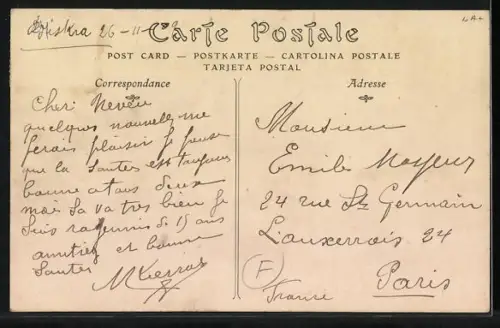 Biskra 26-11-
Carte Postale
POST CARD — POSTKARTE — CARTOLINA POSTALE
TARJETA POSTAL
Correspondance
Cher Neveu
quelques nouvelles me
ferais plaisir je pense
que la Santée est toujours
bonne a tous deux
moi Sa va tres bien je
Suis rajeunis de 15 ans
amitiez et bonne
Santée
Adresse
Monsieur
Emile Mayeur
24 rue St Germain
L'auxerrois 24
Paris
F
France